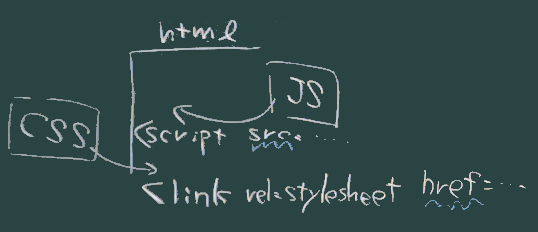 html
JS
CSS
<script src= ....
<link rel=stylesheet href=...